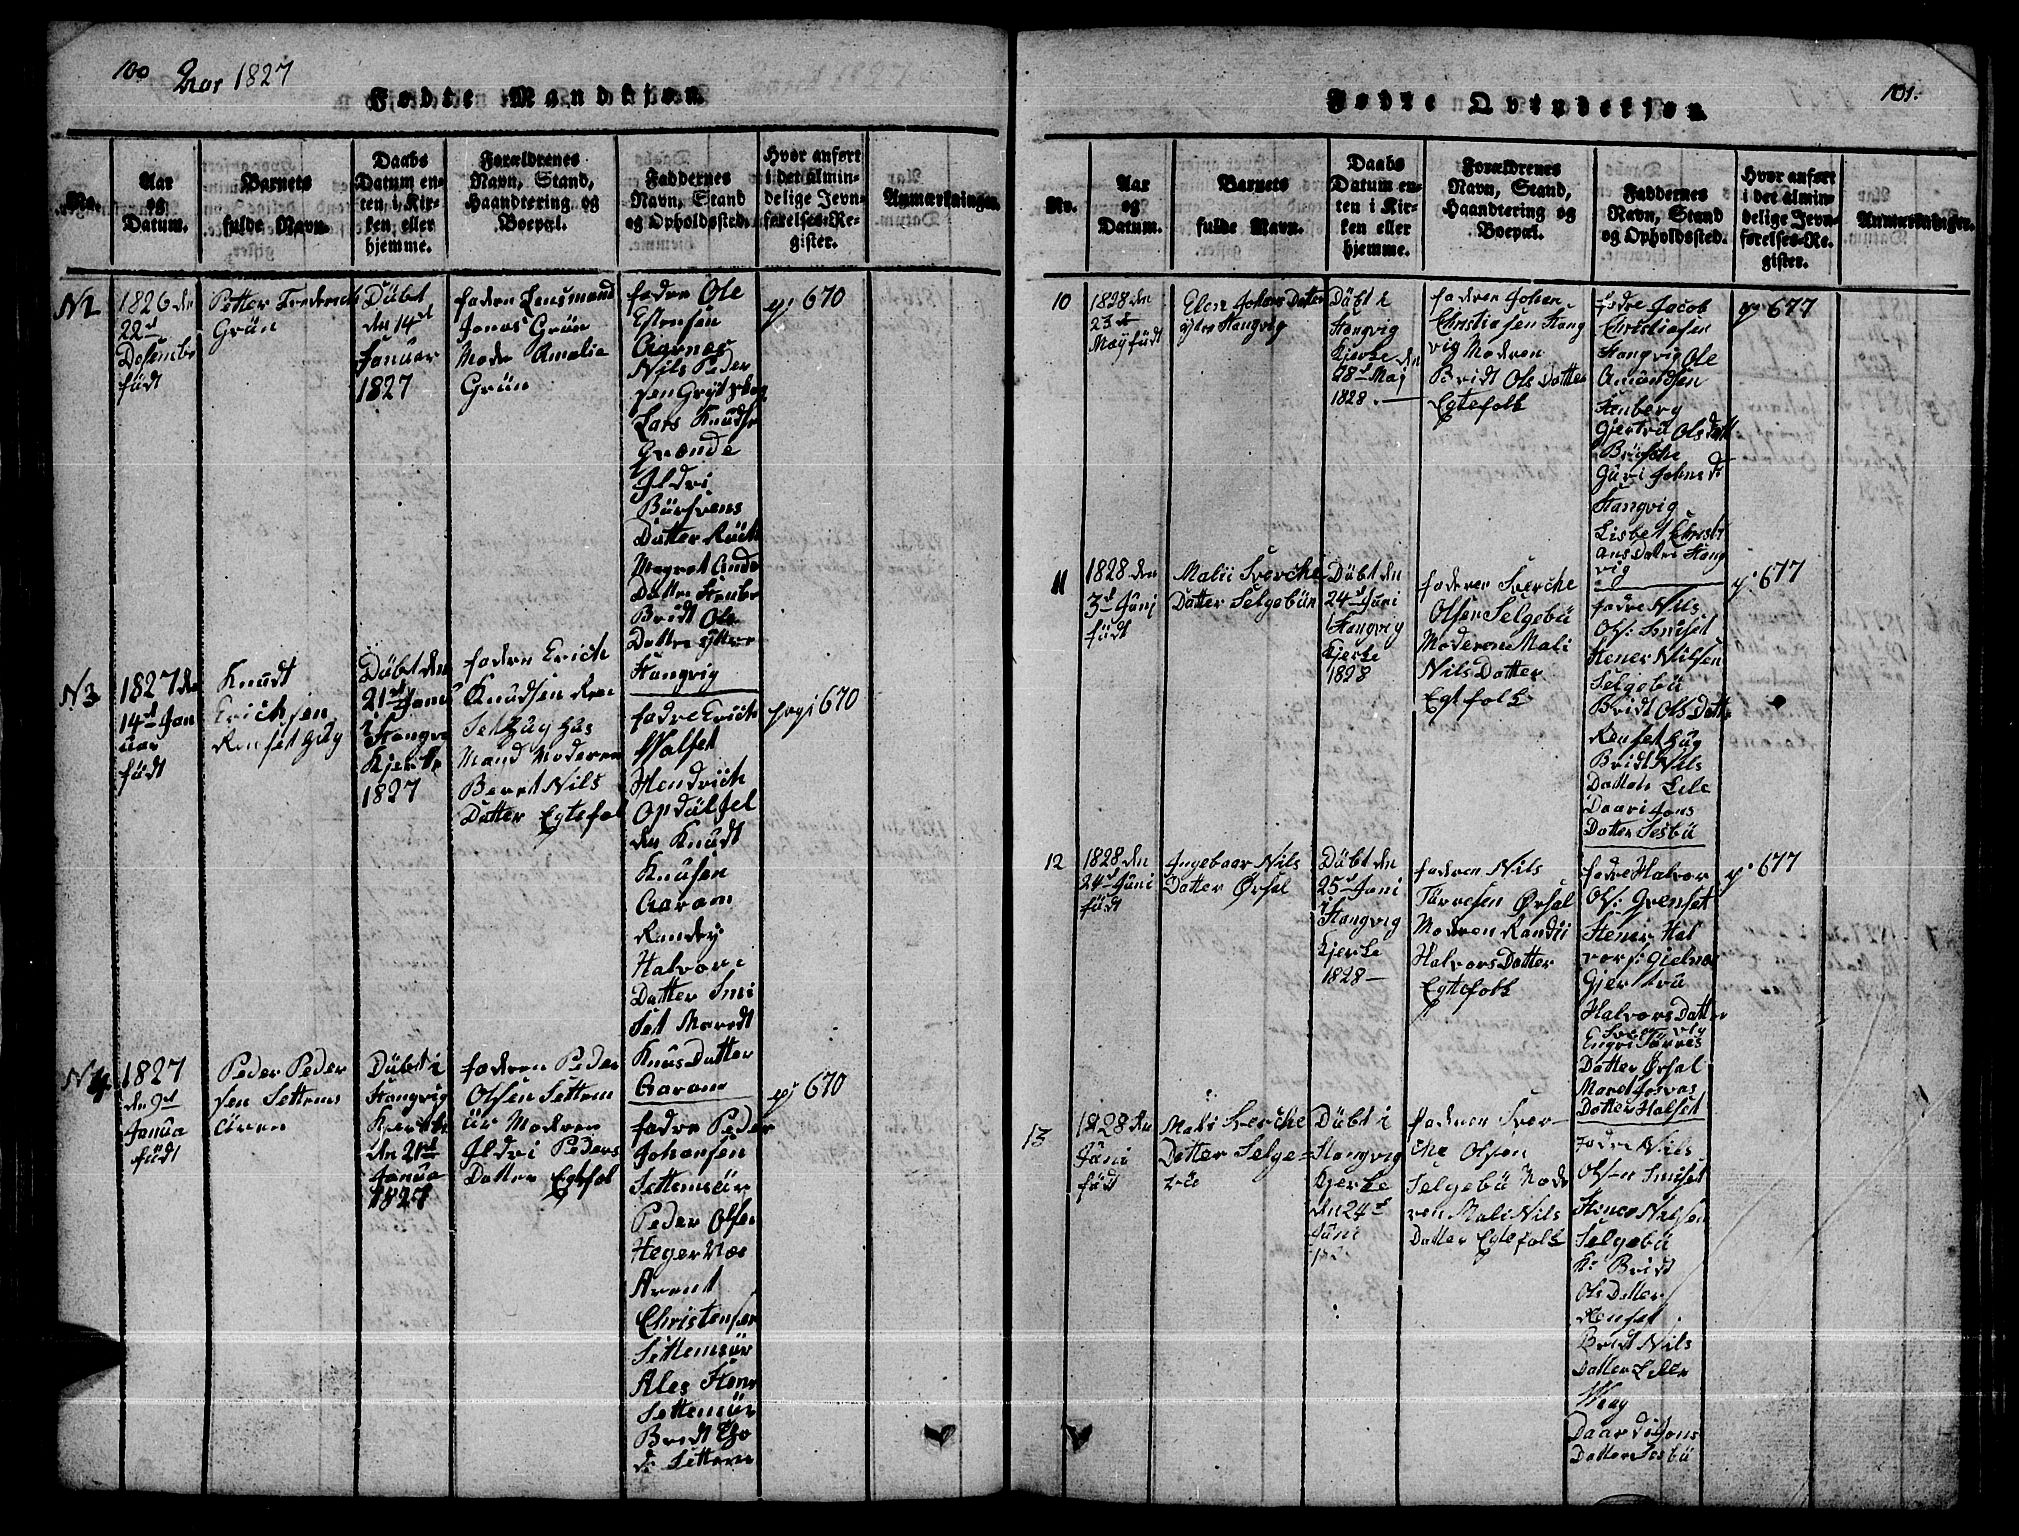 100 Aar 1827
Fødte Mandkjøn.
No.
Aar
og
Datum.
Barnets
fulde Navn.
Daabs
Datum en-
ten i Kir-
ken eller
hjemme.
Forældrenes
Navn, Stand,
Haandtering og
Boepæl.
Faddernes
Navn, Stand
og Opholdssted.
Hvor anført
i det almin-
delige Jevn-
førelses-Re-
gister.
Anmærkninger.
N2
1826 den
22d
Desembr
födt
Petter Frederich
Grün
Döbt
den 14d
Januar
1827
fadren Lensmand
Jonas Grün
Modr Amalia
Grün
fadre Ole
Estensen
Aarnes
Nils Peder
sen
Lars Knudse
Grønde
Jldri
Datter
Magret Ande
Datter Stenbe
Bridt Ols
Datter ytter
Stangvig
p: 670
N3
1827 den
14d Jan
uar
födt
Knudt
Erichsen
Renset Hug
Döbt den
21d Janu
i Stangvi
Kjerke
1827
fadren Erich
Knudsen Ren
Set Hug Hus
Mand Moderen
Beret Nils
Datter Egtefol
fadre Erich
Halset
Hendrich
Opdalsel
den Knudt
Knusen
Aaram
Randey
Halvors
Datter Smi
Set Maredt
Knus Datter
Aaram
pag: 670
N4
1827
den 9d
Janua
födt
Peder Peder
sen Settems
øren
Döbt i
Stangvig
Kjerke
den 21d
Janua
1827
fadren Peder
Olsen Settem
ür Modren
Jldri Peders
Datter Egtefol
fadre Peder
Johansen
Settemsür
Peder Olsen
Hegernæs
Arent
Christenser
Settemsür
Ales Stene
Settemsür
Bridt
Settems
p: 670
101.
Fødte Qvindekjøn.
No.
Aar
og
Datum.
Barnets
fulde Navn.
Daabs
Datum en-
ten i Kir-
ken eller
hjemme.
Forældrenes
Navn, Stand,
Haandtering og
Boepæl.
Faddernes
Navn, Stand
og Opholdssted.
Hvor anført
i det almin-
delige Jevn-
førelses-Re-
gister.
Anmærkninger.
10
1828 den
23d
May födt
Elen Johans Datter
ytre Stangvig
Döbt i
Stangvig
Kjerke den
28d Maj
1828.
fadren Johan
Christiasen Stang
vig Modren
Bridt Ols Datter
Egtefolk
fadre Jacob
Christiasen
Stangvig Ole
Amundsen
Stenberg
Gjertru Ols Datt
Brüske
Guri Johns D
Stangvig
Lisbet Christi
ans Datter Stang
vig
p: 677
11
1828 den
3d Junj
födt
Malii Sverche
Datter Selgebün
Döbt den
24d Juni
i Stangvig
Kjerke
1828
fadren Sverche
Olsen Selgebü
Moderen Mali
Nils Datter
Egtfolk
fadre Nils
Ols: Smiset
Stener Nilsen
Selgebü
Bridt Ols Datter
Renset Hug
Bridt Nils
Datter Lile
Daari Jons
Datter Sesbü
p: 677
12
1828 den
24d Juni
födt
Ingebaar Nils
Datter Ørsal
Döbt den
25d Juni
i Stangvig
Kjerke
1828
fadren Nils
Tørresen Ørsal
Modren Randii
Halvors Datter
Egtefolk
fadre Halvor
Ols: Grenset
Stener Hal
vors:
Gjertru
Halvors Datter
Engri Tørres
Datter Ørsal
Maret
Datter Halset
p: 677
13
1828 den
Juni
födt
Mali Sverche
Datter Selge=
bü
Döbt i
Stangvig
Kjerke
den 24d
Juni
fadren Sver-
che Olsen
Selgebü Mode
ren Mali Nils
Datter Egtefolk
fadre Nils
Olsen Smiset
Stener Nilsen
Selgebü
K: Bridt
Ols Datter
Renset
Bridt Nils
Datter Liler
Waag
Daardi Jons
Datter Sesbü